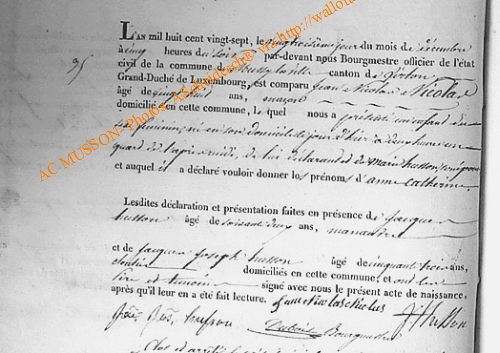 L'AN mil huit cent vingt-sept, le vingt troisième jour du mois de décembre
à cinq heures du soir par-devant nous Bourgmestre officier de l'état
civil de la commune de Mussy la ville canton de Virton
Grand-Duché de Luxembourg, est comparu Jean Nicolas Nicolas
âgé de vingt huit ans, maçon
domicilié en cette commune, le quel nous a présenté un enfant du
sexe féminin, né en son domicile le jour d'hier à deux heures un
quart de l'après midi, de lui déclarant et de Marie husson son épouse
et auquel il a déclaré vouloir donner les prénoms d'anne Catherine
Lesdites déclaration et présentation faites en présence de Jacques
husson âgé de soixante deux ans, manœuvre
et de Jacques Joseph husson âgé de cinquante trois ans,
domiciliés en cette commune; et ont les
père et témoins signé avec nous le présent acte de naissance,
après qu'il leur en a été fait lecture. Jean Nicolas Nicolas J. husson
Bourgmestre
AC MUSSON- Photos A.Schindfessel® via http://wallonia